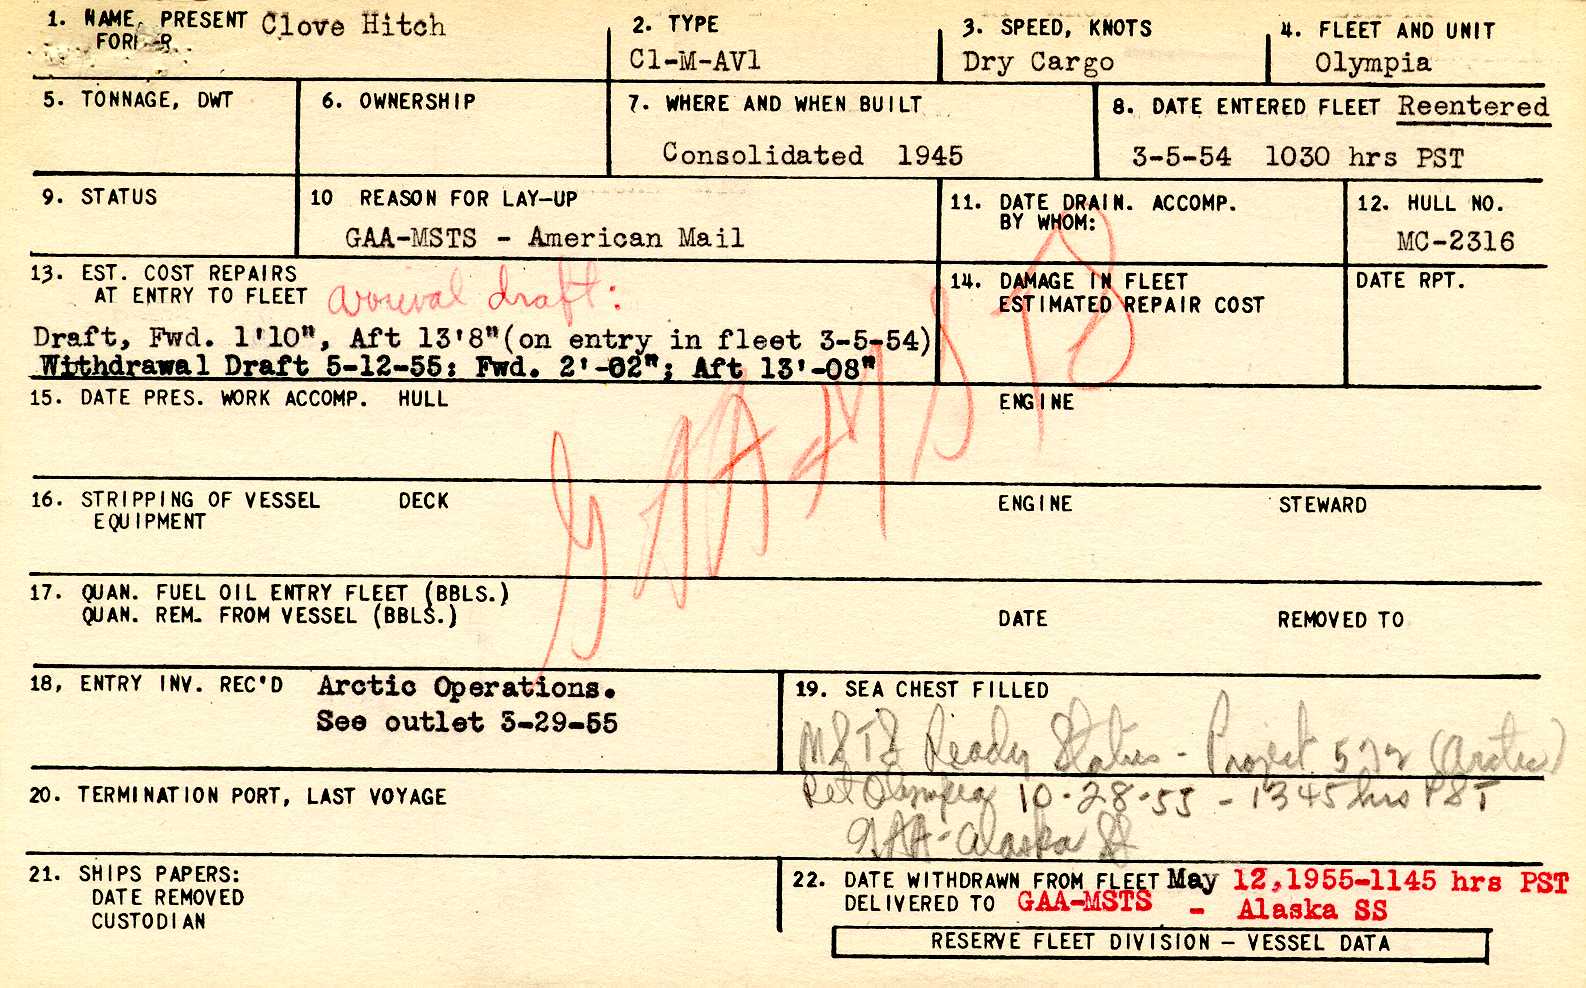 1. NAME, PRESENT Clove Hitch
FORMER
2. TYPE
C1-M-AV1
3. SPEED, KNOTS
Dry Cargo
4. FLEET AND UNIT
Olympia
5. TONNAGE, DWT
6. OWNERSHIP
7. WHERE AND WHEN BUILT
Consolidated 1945
8. DATE ENTERED FLEET Reentered
3-5-54 1030 hrs PST
9. STATUS
10 REASON FOR LAY-UP
GAA-MSTS - American Mail
11. DATE DRAIN. ACCOMP.
BY WHOM:
12. HULL NO.
MC-2316
13. EST. COST REPAIRS
AT ENTRY TO FLEET arrival draft:
Draft, Fwd. 1'10", Aft 13'8"(on entry in fleet 3-5-54)
Withdrawal Draft 5-12-55: Fwd. 2'-02"; Aft 13'-08"
14. DAMAGE IN FLEET
ESTIMATED REPAIR COST
DATE RPT.
GAA-MSTS
15. DATE PRES. WORK ACCOMP. HULL
ENGINE
16. STRIPPING OF VESSEL DECK
EQUIPMENT
ENGINE
STEWARD
17. QUAN. FUEL OIL ENTRY FLEET (BBLS.)
QUAN. REM. FROM VESSEL (BBLS.)
DATE
REMOVED TO
18, ENTRY INV. REC'D Arctic Operations.
See outlet 3-29-55
19. SEA CHEST FILLED
MSTS Ready Status - Project 572 (Arctic)
Ret Olympia 10-28-55 - 1345 hrs PST
GAA-Alaska SS
20. TERMINATION PORT, LAST VOYAGE
21. SHIPS PAPERS:
DATE REMOVED
CUSTODIAN
22. DATE WITHDRAWN FROM FLEET May 12,1955-1145 hrs PST
DELIVERED TO GAA-MSTS - Alaska SS
RESERVE FLEET DIVISION – VESSEL DATA